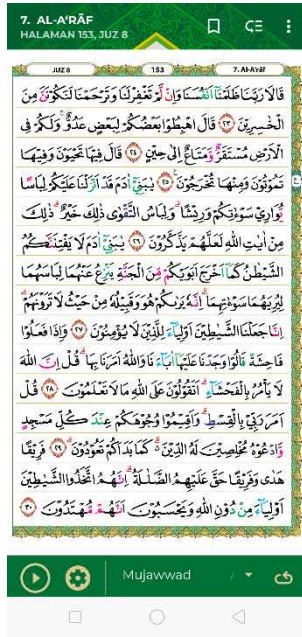 7. AL-A'RĀF
HALAMAN 153, JUZ 8
JUZ 8 153 7. Al-A'rāf
قَالَا رَبَّنَا ظَلَمْنَآ اَنْفُسَنَا وَاِنْ لَّمْ تَغْفِرْ لَنَا وَتَرْحَمْنَا لَنَكُوْنَنَّ مِنَ
الْخٰسِرِيْنَ ۝٢٣ قَالَ اهْبِطُوْا بَعْضُكُمْ لِبَعْضٍ عَدُوٌّ ۚ وَلَكُمْ فِى
الْاَرْضِ مُسْتَقَرٌّ وَّمَتَاعٌ اِلٰى حِيْنٍ ۝٢٤ قَالَ فِيْهَا تَحْيَوْنَ وَفِيْهَا
تَمُوْتُوْنَ وَمِنْهَا تُخْرَجُوْنَ ۝٢٥ يٰبَنِيْٓ اٰدَمَ قَدْ اَنْزَلْنَا عَلَيْكُمْ لِبَاسًا
يُّوَارِيْ سَوْءٰتِكُمْ وَرِيْشًا ۗ وَلِبَاسُ التَّقْوٰى ذٰلِكَ خَيْرٌ ۗ ذٰلِكَ
مِنْ اٰيٰتِ اللّٰهِ لَعَلَّهُمْ يَذَّكَّرُوْنَ ۝٢٦ يٰبَنِيْٓ اٰدَمَ لَا يَفْتِنَنَّكُمُ
الشَّيْطٰنُ كَمَآ اَخْرَجَ اَبَوَيْكُمْ مِّنَ الْجَنَّةِ يَنْزِعُ عَنْهُمَا لِبَاسَهُمَا
لِيُرِيَهُمَا سَوْءٰتِهِمَا ۗ اِنَّهٗ يَرٰىكُمْ هُوَ وَقَبِيْلُهٗ مِنْ حَيْثُ لَا تَرَوْنَهُمْ ۗ
اِنَّا جَعَلْنَا الشَّيٰطِيْنَ اَوْلِيَاۤءَ لِلَّذِيْنَ لَا يُؤْمِنُوْنَ ۝٢٧ وَاِذَا فَعَلُوْا
فَاحِشَةً قَالُوْا وَجَدْنَا عَلَيْهَآ اٰبَاۤءَنَا وَاللّٰهُ اَمَرَنَا بِهَا ۗ قُلْ اِنَّ اللّٰهَ
لَا يَأْمُرُ بِالْفَحْشَاۤءِ ۗ اَتَقُوْلُوْنَ عَلَى اللّٰهِ مَا لَا تَعْلَمُوْنَ ۝٢٨ قُلْ
اَمَرَ رَبِّيْ بِالْقِسْطِ ۗ وَاَقِيْمُوْا وُجُوْهَكُمْ عِنْدَ كُلِّ مَسْجِدٍ
وَّادْعُوْهُ مُخْلِصِيْنَ لَهُ الدِّيْنَ ۗ كَمَا بَدَاَكُمْ تَعُوْدُوْنَ ۝٢٩ فَرِيْقًا
هَدٰى وَفَرِيْقًا حَقَّ عَلَيْهِمُ الضَّلٰلَةُ ۗ اِنَّهُمُ اتَّخَذُوا الشَّيٰطِيْنَ
اَوْلِيَاۤءَ مِنْ دُوْنِ اللّٰهِ وَيَحْسَبُوْنَ اَنَّهُمْ مُّهْتَدُوْنَ ۝٣٠
Mujawwad